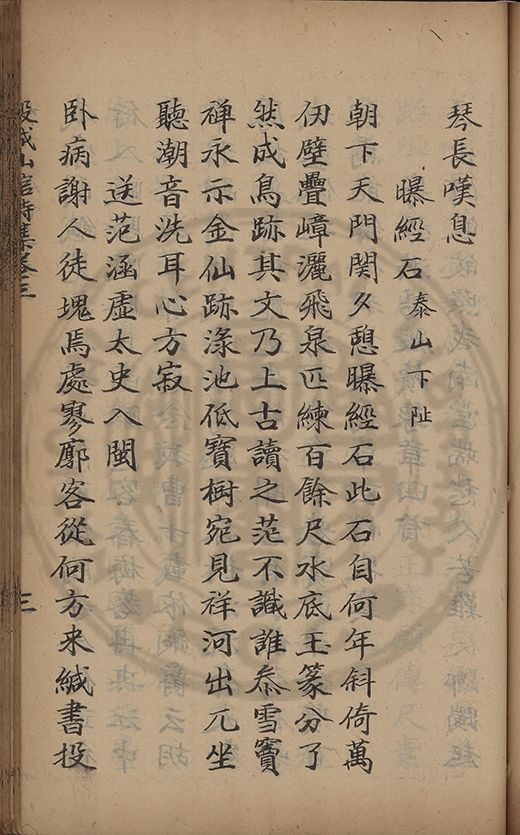 琴長嘆息
曝經石 泰山下趾
朝下天門関夕憩曝經石此石自何年斜倚萬
仞壁疊嶂灑飛泉匹練百餘尺水底玉篆分了
然成鳥跡其文乃上古讀之茫不識誰叅雪竇
禅永示金仙跡渌池低寶樹宛見祥河出兀坐
聽潮音洗耳心方寂
送范涵虚太史入閩
卧病謝人徒塊焉處寥廓客從何方来緘書投
城山館詩集卷三 三